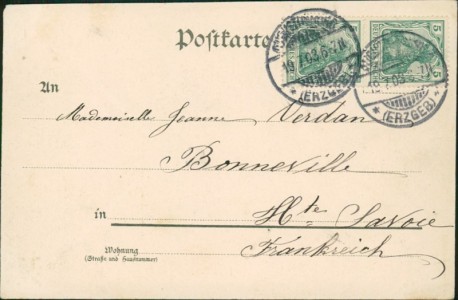 Postkarte
19.7.03.6-7.N.
* (ERZGEB) *
5 5
An
Mademoiselle Jeanne Verdan
Bonneville
in Hte Savoie
Frankreich
Wohnung
(Straße und Hausnummer)